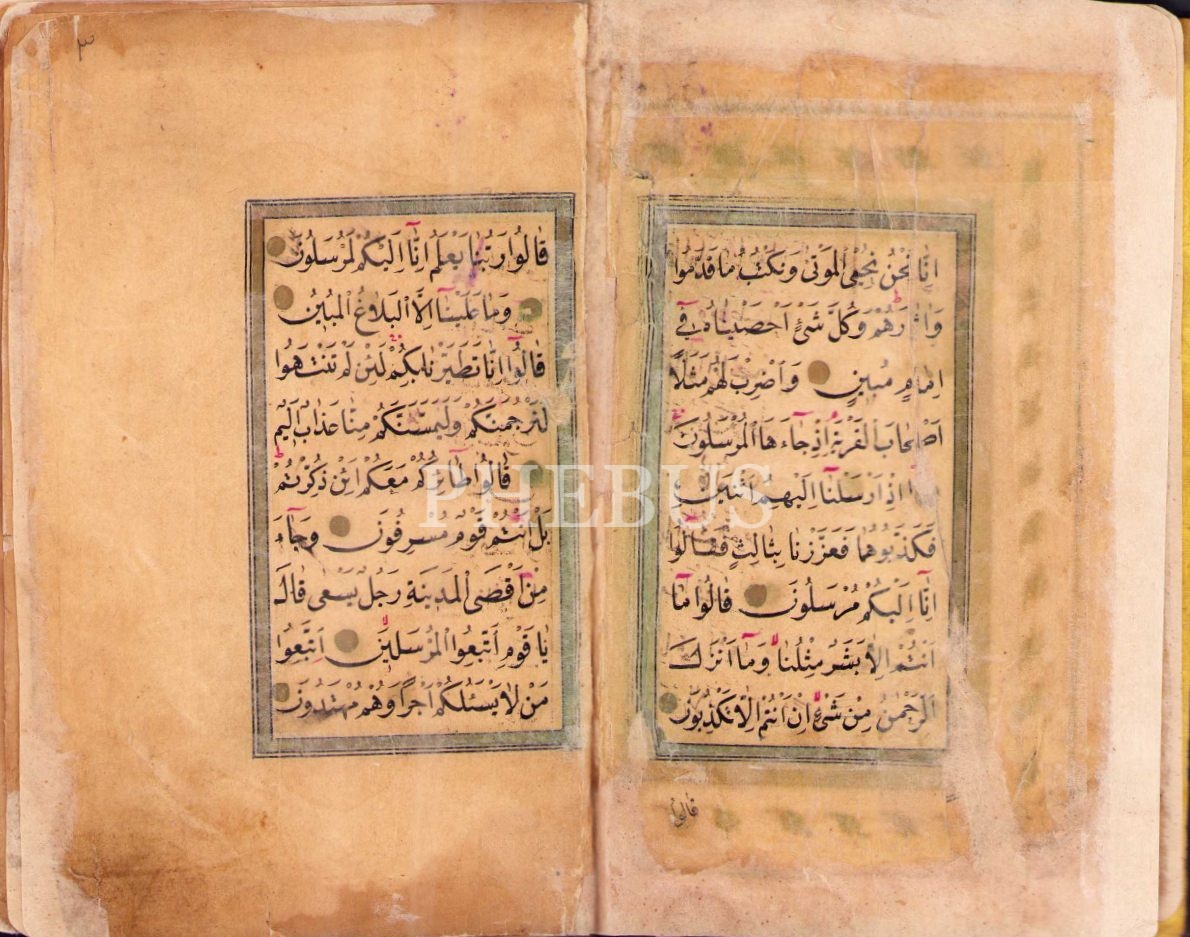 اِنَّا نَحْنُ نُحْيِي الْمَوْتٰى وَنَكْتُبُ مَا قَدَّمُوا
وَاٰثَارَهُمْ وَكُلَّ شَيْءٍ اَحْصَيْنَاهُ فٖي
اِمَامٍ مُبٖينٍ وَاَضْرِبْ لَهُمْ مَثَلًا
اَصْحَابَ الْقَرْيَةِ اِذْ جَآءَهَا الْمُرْسَلُونَ
اِذْ اَرْسَلْنَآ اِلَيْهِمُ اثْنَيْنِ
فَكَذَّبُوهُمَا فَعَزَّزْنَا بِثَالِثٍ فَقَالُٓوا
اِنَّآ اِلَيْكُمْ مُرْسَلُونَ قَالُوا مَٓا
اَنْتُمْ اِلَّا بَشَرٌ مِثْلُنَا وَمَٓا اَنْزَلَ
الرَّحْمٰنُ مِنْ شَيْءٍ اِنْ اَنْتُمْ اِلَّا تَكْذِبُونَ
قالوا
٣
قَالُوا رَبُّنَا يَعْلَمُ اِنَّٓا اِلَيْكُمْ لَمُرْسَلُونَ
وَمَا عَلَيْنَٓا اِلَّا الْبَلَاغُ الْمُبٖينُ
قَالُٓوا اِنَّا تَطَيَّرْنَا بِكُمْ لَئِنْ لَمْ تَنْتَهُوا
لَنَرْجُمَنَّكُمْ وَلَيَمَسَّنَّكُمْ مِنَّا عَذَابٌ اَلٖيمٌ
قَالُوا طَٓائِرُكُمْ مَعَكُمْ اَئِنْ ذُكِّرْتُمْ
بَلْ اَنْتُمْ قَوْمٌ مُسْرِفُونَ وَجَٓاءَ
مِنْ اَقْصَى الْمَدٖينَةِ رَجُلٌ يَسْعٰى قَالَ
يَا قَوْمِ اتَّبِعُوا الْمُرْسَلٖينَ اِتَّبِعُوا
مَنْ لَا يَسْـَٔلُكُمْ اَجْرًا وَهُمْ مُهْتَدُونَ
PHEBUS